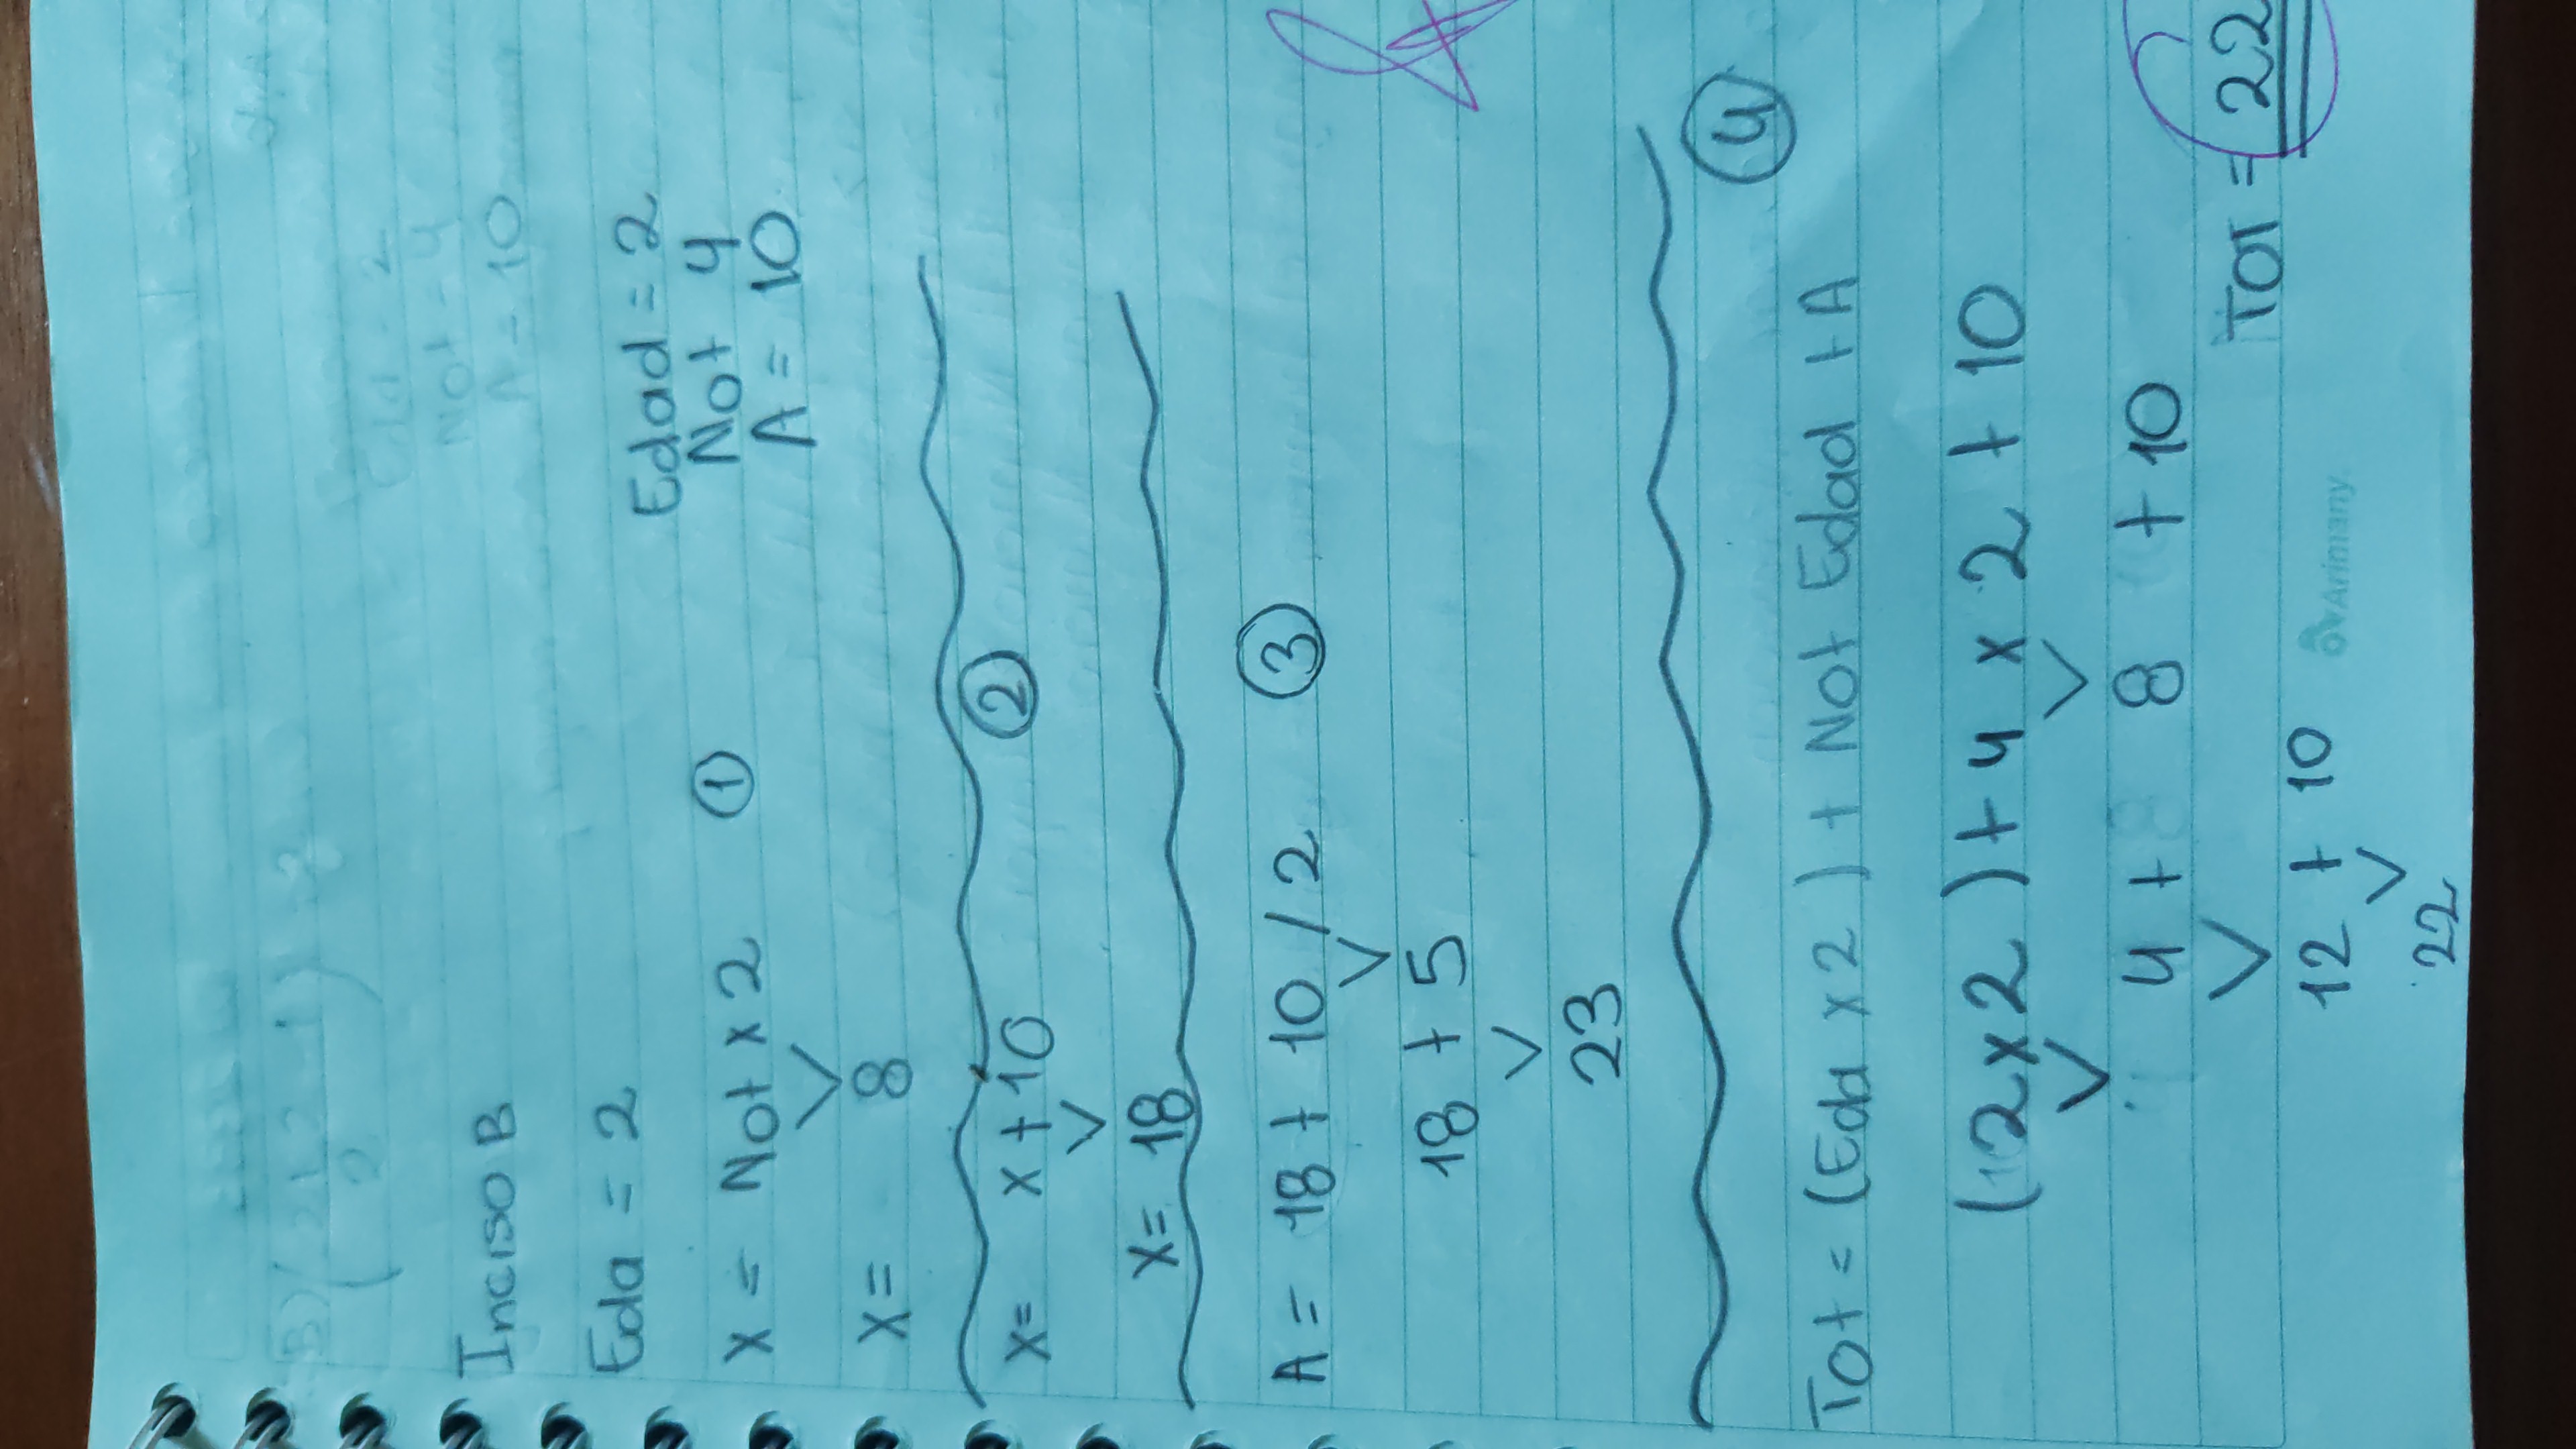 Edad = 2
Not 4
A = 10
Inciso B
Eda = 2
X = Not x 2 ①
X = 8
X = X + 10 ②
X = 18
A = 18 + 10 / 2 ③
18 + 5
23
④
Tot = (Eda x 2) + Not Edad + A
(2 x 2) + 4 x 2 + 10
4 + 8 + 10
12 + 10
22
Tot = 22
Arimany